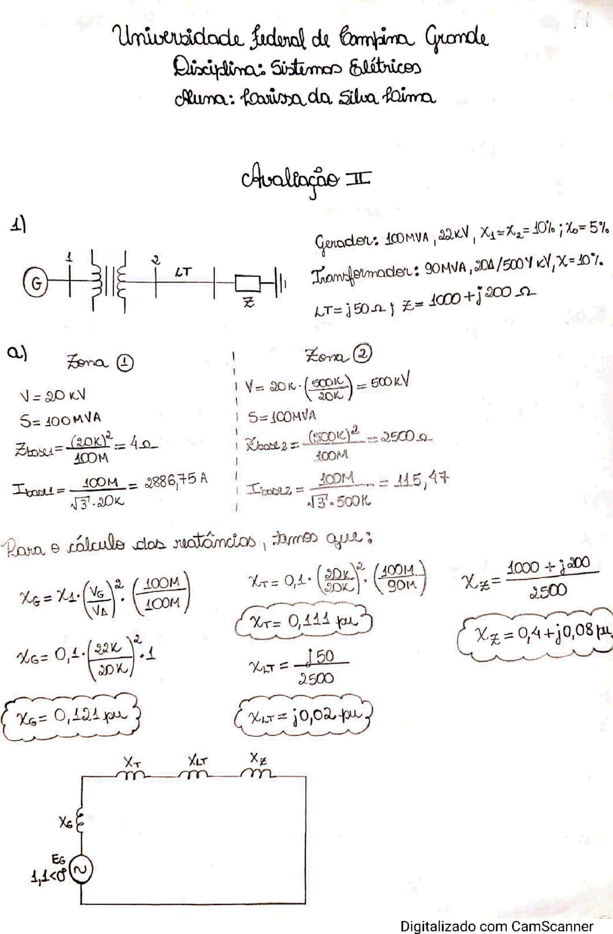 Universidade Federal de Campina Grande
Disciplina: Sistemas Elétricos
Aluna: Larissa da Silva Lima
Avaliação II
1)
G 1 2 LT Z
Gerador: 100MVA, 22KV, X1=X2=10%; X0=5%
Transformador: 90MVA, 20Δ/500Y KV, X=10%
LT=j50Ω; Z=1000+j200Ω
a) Zona ①
V=20KV
S=100MVA
Zbase1=(20K)²/100M=4Ω
Ibase1=100M/√3·20K=2886,75A
Zona ②
V=20K·(500K/20K)=500KV
S=100MVA
Zbase2=(500K)²/100M=2500Ω
Ibase2=100M/√3·500K=115,47
Para o cálculo das reatâncias, temos que:
XG=X1·(VG/VA)²·(100M/100M)
XG=0,1·(22K/20K)²·1
XG=0,121 pu
XT=0,1·(20K/20K)²·(100M/90M)
XT=0,111 pu
XLT=j50/2500
XLT=j0,02 pu
XZ=1000+j200/2500
XZ=0,4+j0,08 pu
XT XLT XZ
XG
EG
1,1<0°
Digitalizado com CamScanner